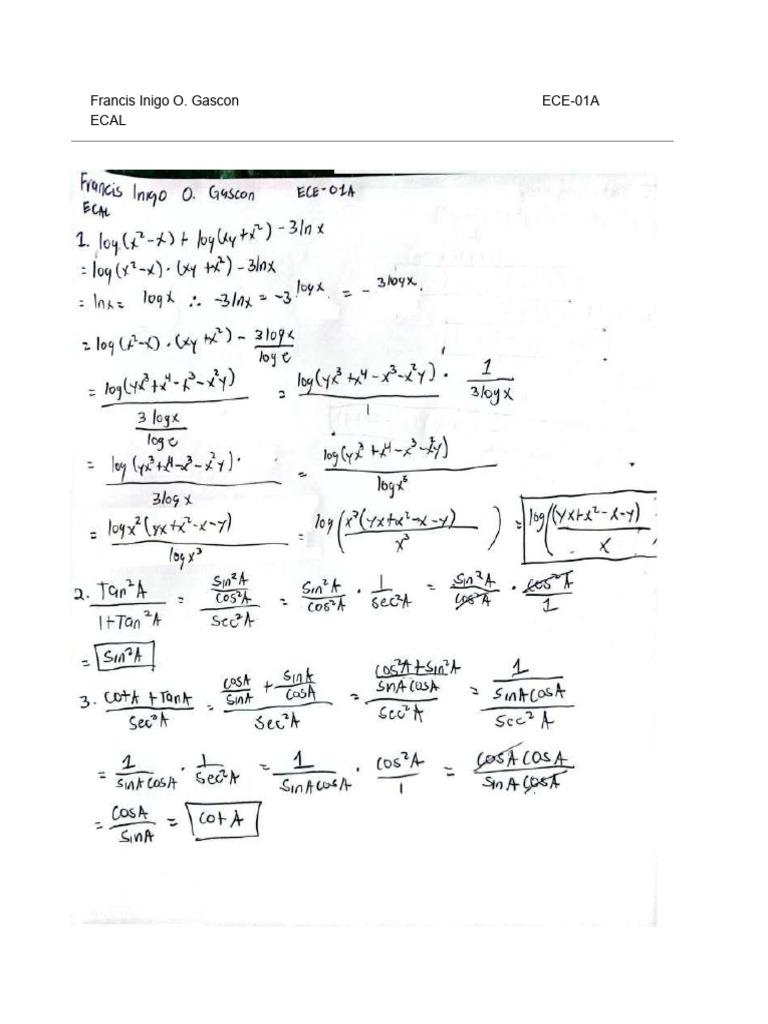 Francis Inigo O. Gascon ECE-01A
ECAL
Francis Inigo O. Gascon ECE-01A
ECAL
1. log(x²-x) + log(xy+x²) - 3ln x
= log(x²-x)·(xy+x²) - 3lnx
= lnx = log x ∴ -3lnx = -3 log x. = - 3logx.
= log(x²-x)·(xy+x²) - 3logx / log e
= log(yx³+x⁴-x³-x²y) / (3 logx / log e) = log(yx³+x⁴-x³-x²y) / 1 · 1 / 3logx
= log(yx³+x⁴-x³-x²y)· / 3logx = log(yx³+x⁴-x³-x²y) / logx³
= logx²(yx+x²-x-y) / logx³ = log(x²(yx+x²-x-y) / x³) = log((yx+x²-x-y) / x
2. Tan²A / 1+Tan²A = (Sin²A / Cos²A) / Sec²A = Sin²A / Cos²A · 1 / Sec²A = Sin²A / Cos²A · Cos²A / 1
= Sin²A
3. CotA + TanA / Sec²A = (CosA / SinA + SinA / CosA) / Sec²A = (Cos²A + Sin²A / SinACosA) / Sec²A = (1 / SinACosA) / Sec²A
= 1 / SinACosA · 1 / Sec²A = 1 / SinACosA · Cos²A / 1 = CosACosA / SinACosA
= CosA / SinA = Cot A